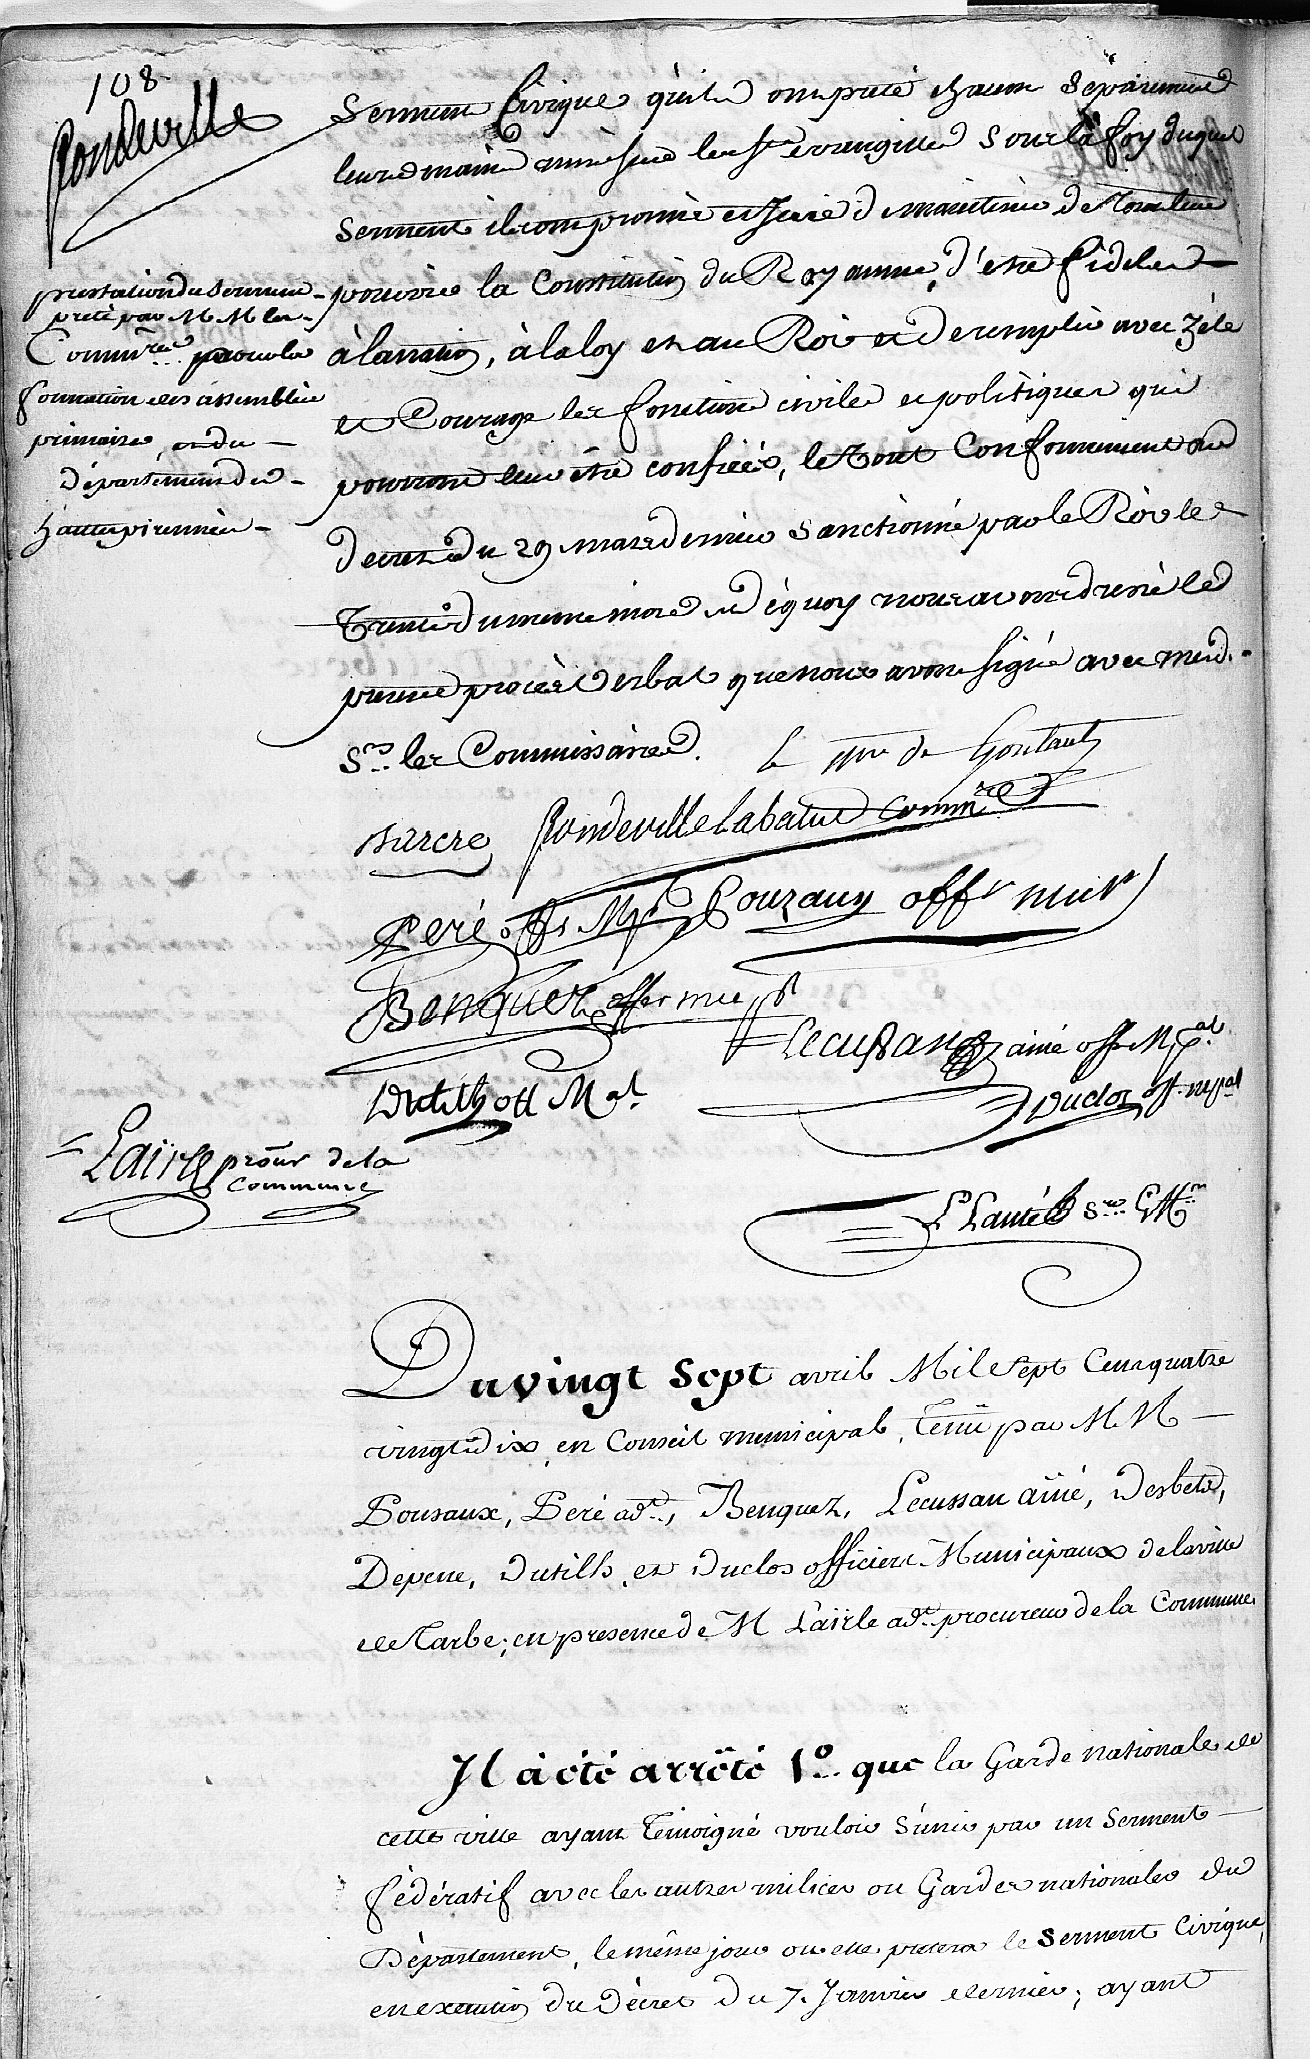 108
Rondeville
prestation du serment
preté par M.M les
Comm.res pour la
formation des assemblées
primaires, et du
département des
hautes pirennées
Serment Civique qu'ils ont preté chacun séparément
leurs mains mises sur les Sts évangilles sous la foy duquel
Serment ils ont promis et juré de maintenir de tout leur
pouvoir la Constitution du Royaume, d'etre fideles
à la nation, à la loy et au Roi et de remplir avec zéle
et Courage les fonctions civiles et politiques qui
pourront leur être confiées, le tout Conformement au
decret du 29 mars dernier sanctionné par le Roi le
trente du meme mois et dequoy nous avons dressé le
present procès verbal que nous avons signé avec mesd.
Srs les Commissaires. le mis de Gontaut
Darcre Rondeville Labatut comm.re
Peré off. Mpl Pouzaux offr mul
Benquez offer mupl
Lecussan ainé off. Mpal
Dutilh off Mal
Duclos off. mpal
Lairle procur de la
Commune
Lanté sre Gr
Du vingt Sept avril Mil Sept Cens quatre
vingt dix, en Conseil municipal, Tenu par M.M
Pousaux, Peré adt., Benquez, Lecussan ainé, Desbets,
Depene, Dutilh, et Duclos officiers Municipaux de la ville
de Tarbe; en presence de M Lairle adt. procureur de la Commune
Il à été arrêté 1o. que la Garde nationale de
cette ville ayant Témoigné vouloir s'unir par un Serment
fédératif avec les autres milices ou Gardes nationales du
Département, le même jour ou elle pretera le Serment Civique,
en execution du Décret du 7. Janvier dernier; ayant